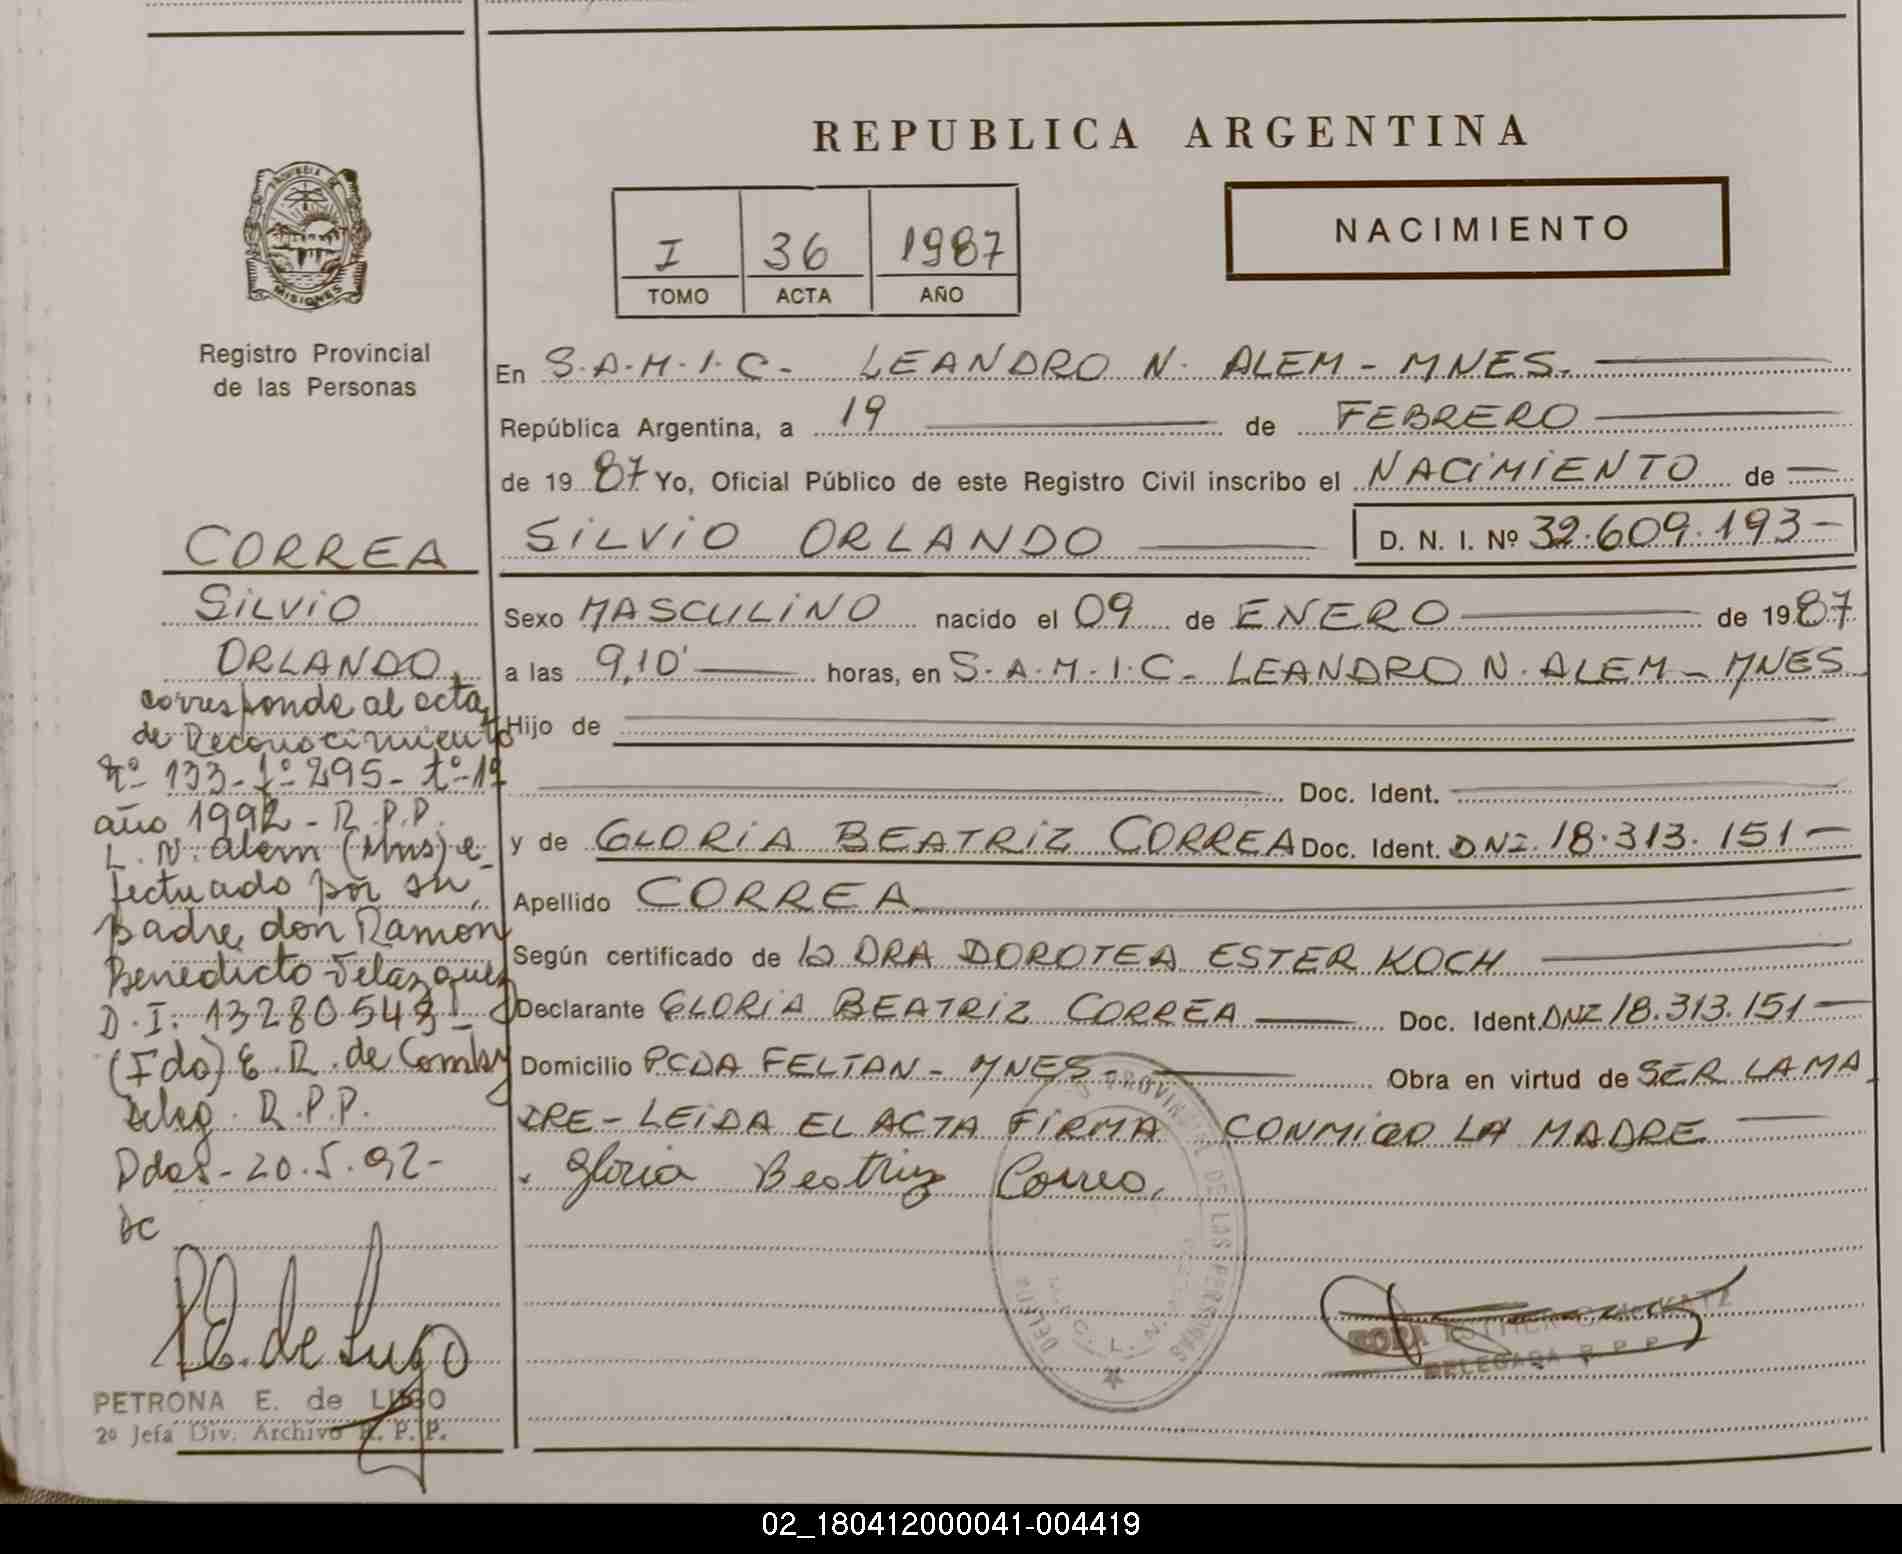 REPUBLICA ARGENTINA
PROVINCIA DE
MISIONES
Registro Provincial
de las Personas
I 36 1987
TOMO ACTA AÑO
NACIMIENTO
En S.A.M.I.C. LEANDRO N. ALEM - MNES.
República Argentina, a 19 de FEBRERO
de 1987 Yo, Oficial Público de este Registro Civil inscribo el NACIMIENTO de
SILVIO ORLANDO D. N. I. Nº 32.609.193-
Sexo MASCULINO nacido el 09 de ENERO de 1987
a las 9,10' horas, en S.A.M.I.C. LEANDRO N. ALEM - MNES
Hijo de
Doc. Ident.
y de GLORIA BEATRIZ CORREA Doc. Ident. DNI. 18.313.151-
Apellido CORREA
Según certificado de la DRA DOROTEA ESTER KOCH
Declarante GLORIA BEATRIZ CORREA Doc. Ident. DNI 18.313.151-
Domicilio PCDA FELTAN - MNES- Obra en virtud de SER LA MA
DRE - LEIDA EL ACTA FIRMA CONMIGO LA MADRE
Gloria Beatriz Correa
CORREA
SILVIO
ORLANDO
corresponde al acta
de Reconocimiento
Nº 133- fº 295- tº-1º
año 1992 - R.P.P.
L. N. Alem (Mns) e-
fectuado por su
padre, don Ramon
Benedicto Velazquez
D.I: 13280548-
(Fdo) E. R. de Comby
Deleg. R.P.P.
Pdas- 20.5.92-
P.E. de Lugo
PETRONA E. de LUGO
2º Jefa Div. Archivo R. P. P.
PROVINCIAL DE LAS PERSONAS
DELEGADA R. P. P.
02_180412000041-004419